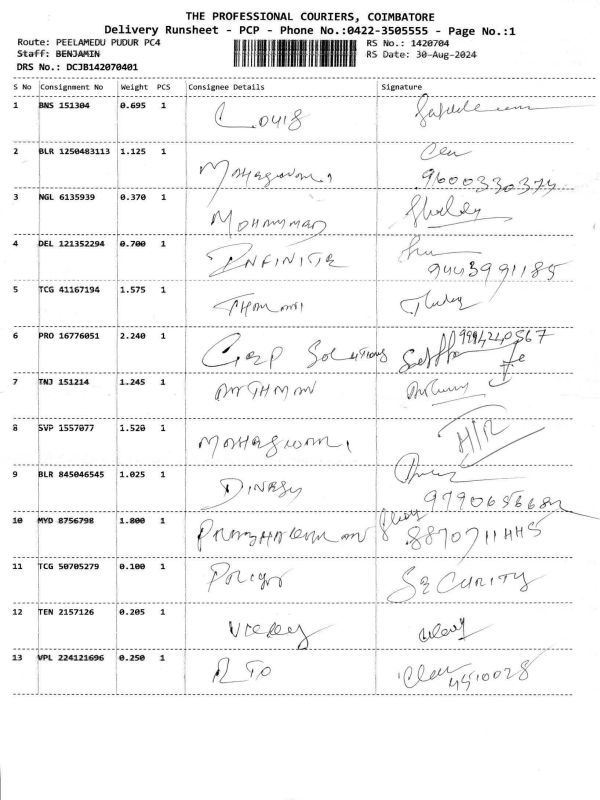 THE PROFESSIONAL COURIERS, COIMBATORE
Delivery Runsheet - PCP - Phone No.:0422-3505555 - Page No.:1
Route: PEELAMEDU PUDUR PC4 RS No.: 1420704
Staff: BENJAMIN RS Date: 30-Aug-2024
DRS No.: DCJB142070401
S No Consignment No Weight PCS Consignee Details Signature
1 BNS 151304 0.695 1 Louis
2 BLR 1250483113 1.125 1 9600330374
3 NGL 6135939 0.370 1 MOHAMMAD
4 DEL 121352294 0.700 1 INFINITE 9443991185
5 TCG 41167194 1.575 1
6 PRO 16776051 2.240 1 Corp Solutions 9994240567
7 TNJ 151214 1.245 1
8 SVP 1557077 1.520 1 H/R
9 BLR 845046545 1.025 1 DINESH
10 MYD 8756798 1.800 1
11 TCG 50705279 0.100 1 SECURITY
12 TEN 2157126 0.205 1 Vicky
13 VPL 224121696 0.250 1 RTO 4510028